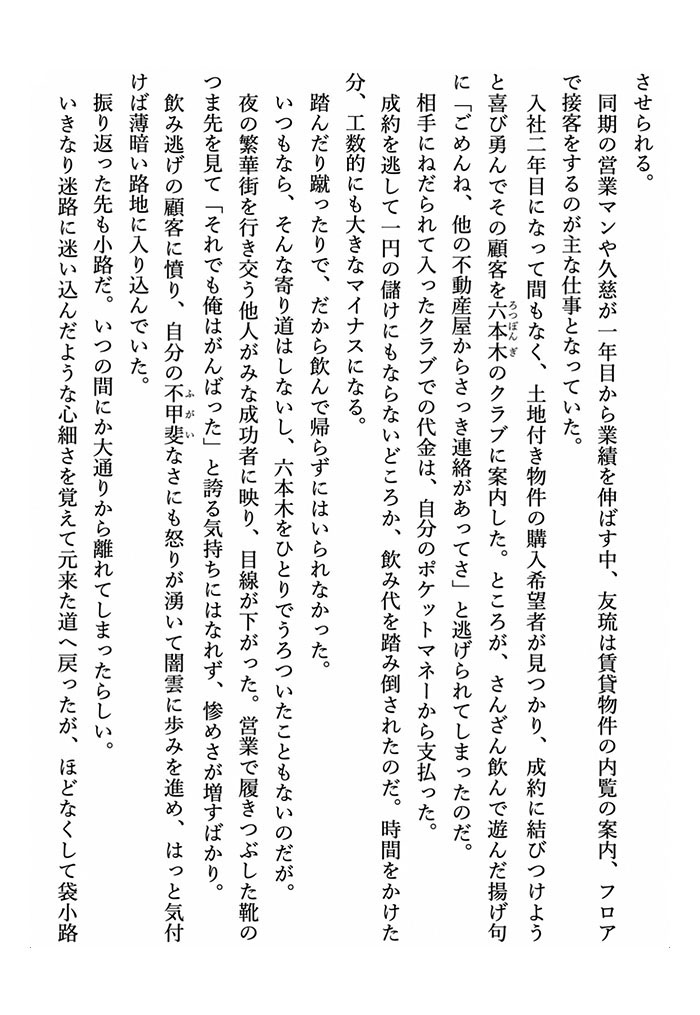 させられる。
同期の営業マンや久慈が一年目から業績を伸ばす中、友琉は賃貸物件の内覧の案内、フロア
で接客をするのが主な仕事となっていた。
入社二年目になって間もなく、土地付き物件の購入希望者が見つかり、成約に結びつけよう
と喜び勇んでその顧客を六本木のクラブに案内した。ところが、さんざん飲んで遊んだ揚げ句
に「ごめんね、他の不動産屋からさっき連絡があってさ」と逃げられてしまったのだ。
相手にねだられて入ったクラブでの代金は、自分のポケットマネーから支払った。
成約を逃して一円の儲けにもならないどころか、飲み代を踏み倒されたのだ。時間をかけた
分、工数的にも大きなマイナスになる。
踏んだり蹴ったりで、だから飲んで帰らずにはいられなかった。
いつもなら、そんな寄り道はしないし、六本木をひとりでうろついたこともないのだが。
夜の繁華街を行き交う他人がみな成功者に映り、目線が下がった。営業で履きつぶした靴の
つま先を見て「それでも俺はがんばった」と誇る気持ちにはなれず、惨めさが増すばかり。
飲み逃げの顧客に憤り、自分の不甲斐なさにも怒りが湧いて闇雲に歩みを進め、はっと気付
けば薄暗い路地に入り込んでいた。
振り返った先も小路だ。いつの間にか大通りから離れてしまったらしい。
いきなり迷路に迷い込んだような心細さを覚えて元来た道へ戻ったが、ほどなくして袋小路